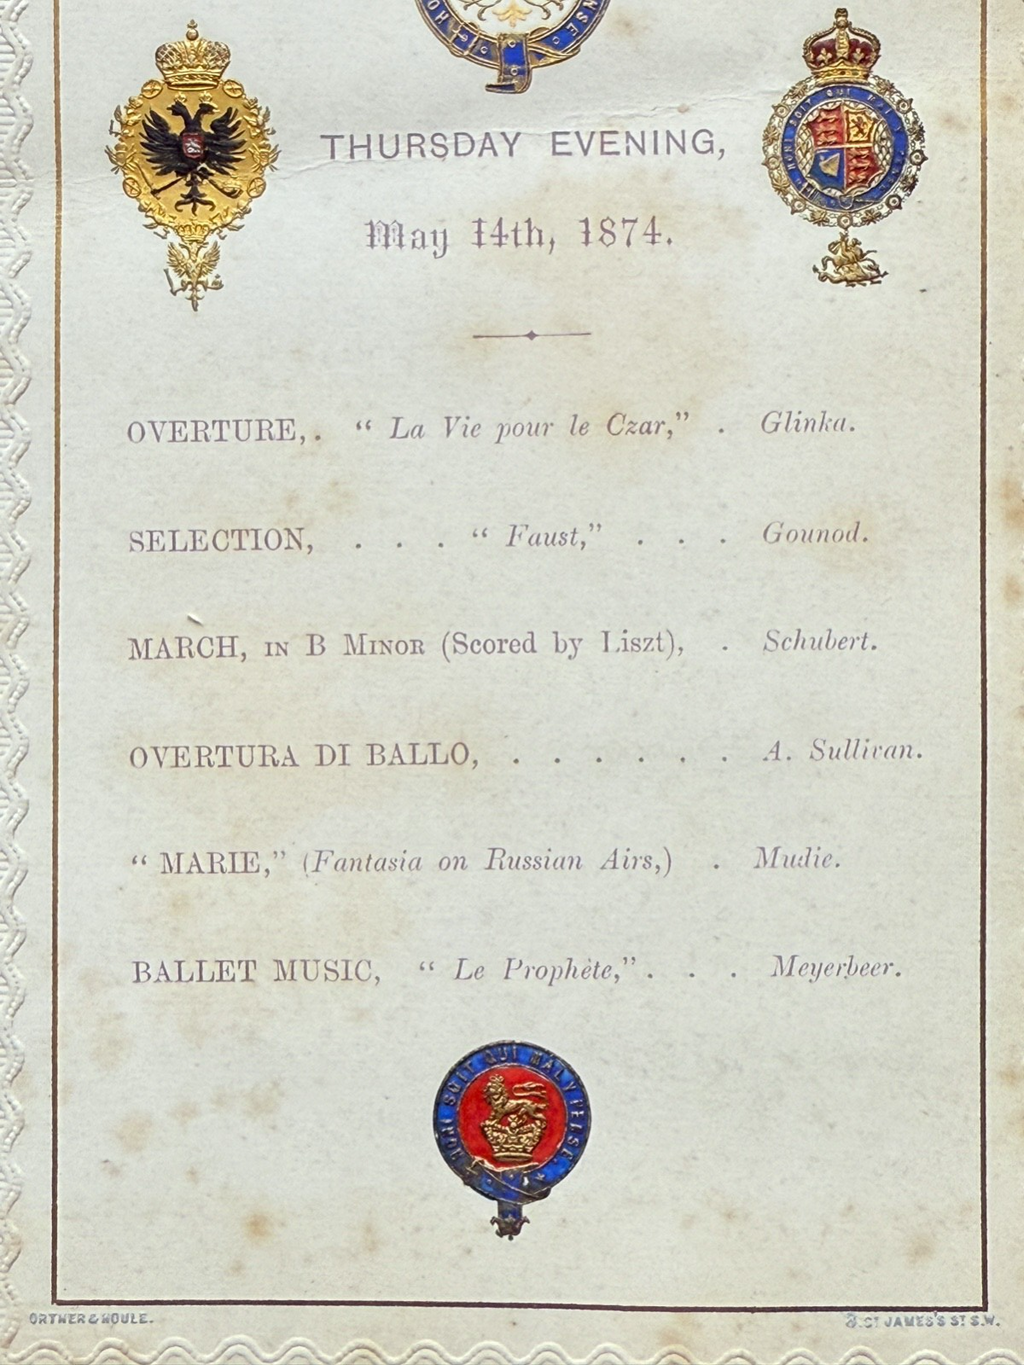 HO NSE
HONI SOIT QUI MAL Y PENSE
THURSDAY EVENING,
May 14th, 1874.
OVERTURE,. “ La Vie pour le Czar,” . Glinka.
SELECTION, . . . “ Faust,” . . . Gounod.
MARCH, IN B MINOR (Scored by Liszt), . Schubert.
OVERTURA DI BALLO, . . . . . . A. Sullivan.
“ MARIE,” (Fantasia on Russian Airs,) . Mudie.
BALLET MUSIC, “ Le Prophète,” . . . Meyerbeer.
HONI SOIT QUI MAL Y PENSE.
ORTNER & HOULE. 3. ST JAMES'S ST S.W.